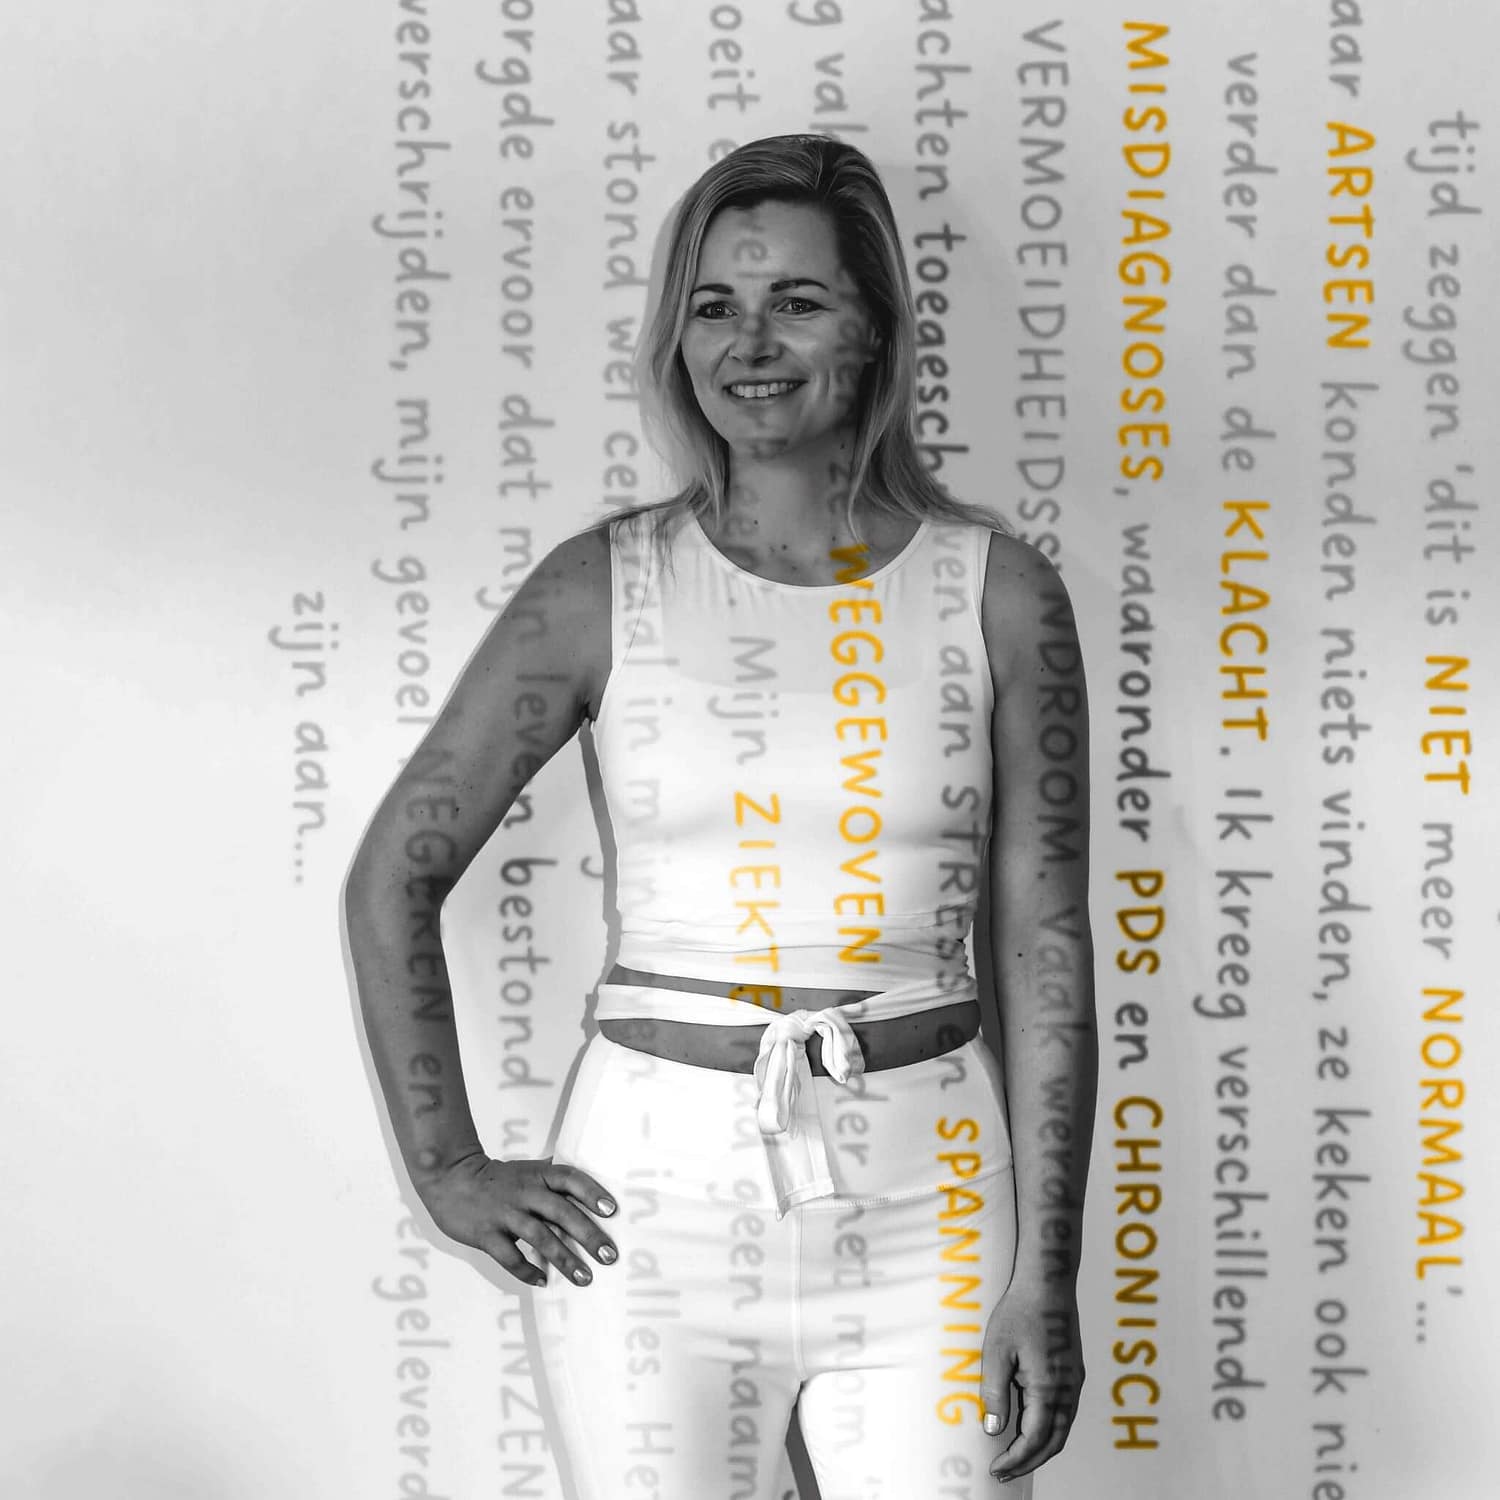 tijd zeggen 'dit is NIET meer NORMAAL'...
aar ARTSEN konden niets vinden, ze keken ook nie
verder dan de KLACHT. Ik kreeg verschillende
MISDIAGNOSES, waaronder PDS en CHRONISCH
VERMOEIDHEIDSSYNDROOM. Vaak werden mijn
achten toegeschreven aan STRESS en SPANNING en
ze WEGGEWOVEN onder het mom
oeit een Mijn ZIEKTE had geen naam
aar stond wel centraal in mijn leven - in alles. He
orgde ervoor dat mijn leven bestond uit ENZEN
verschrijden, mijn gevoel NEGEREN en overgeleverd
zijn aan...